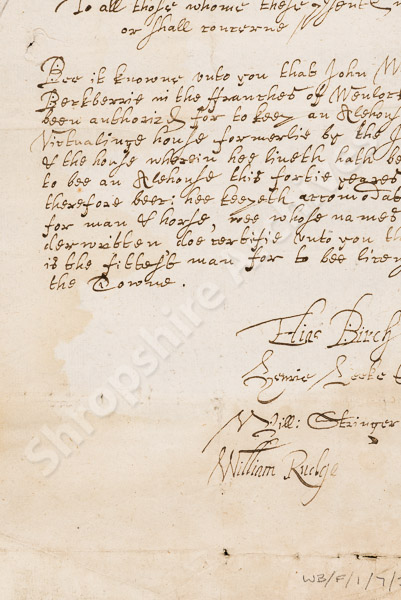 To all those whome these psent
or shall concerne
Bee it knowne vnto you that John
Beckberrie in the ffranches of Wenlock
been authorized for to keep an Alehouse
Victualinge house formerlie by the
& the house wherein hee liueth hath
to bee an Alehouse this fortie yeares
therefore beer: hee keepeth accomodat
for man & horse, wee whose names
derwritten doe certifie vnto you th
is the fittest man for to bee licen
the Towne.
Elias Birch
Henrie Leeke
Will: Stringer
William Rudge
Shropshire Archives
WB/F/1/7/